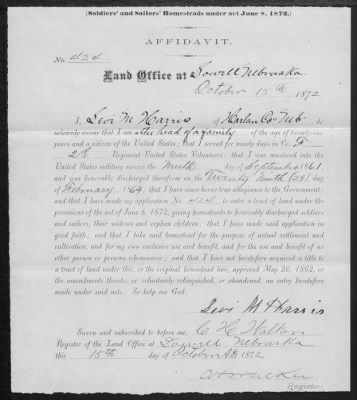 (Soldiers' and Sailors' Homesteads under act June 8, 1872.)
AFFIDAVIT.
No. 424
Land Office at Lowell Nebraska
October 15th, 1872
I, Levi M Harris of Harlan Co Neb do
solemnly swear that I am the head of a family of the age of twenty-one
years and a citizen of the United States; that I served for ninety days in Co. F
2d Regiment United States Volunteers; that I was mustered into the
United States military service the Ninth day of September 1861
and was honorably discharged therefrom on the Twenty ninth (29) day
of February 1864; that I have since borne true allegiance to the Government;
and that I have made my application No. 424 to enter a tract of land under the
provisions of the act of June 8, 1872, giving homesteads to honorably discharged soldiers
and sailors, their widows and orphan children; that I have made said application in
good faith; and that I take said homestead for the purpose of actual settlement and
cultivation, and for my own exclusive use and benefit, and for the use and benefit of no
other person or persons whomsoever; and that I have not heretofore acquired a title to
a tract of land under this, or the original homestead law, approved May 20, 1862, or
the amendments thereto, or voluntarily relinquished, or abandoned, an entry heretofore
made under said acts: So help me God.
Levi M Harris
Sworn and subscribed to before me,
Register of the Land Office at Lowell Nebraska
this 15th day of October AD 1872
Register.